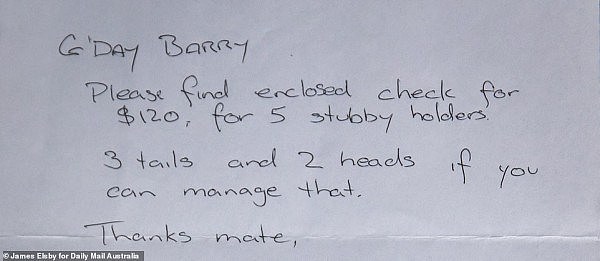 G'DAY BARRY
Please find enclosed check for
$120, for 5 stubby holders.
3 tails and 2 heads if you
can manage that.
Thanks mate,
© James Elsby for Daily Mail Australia